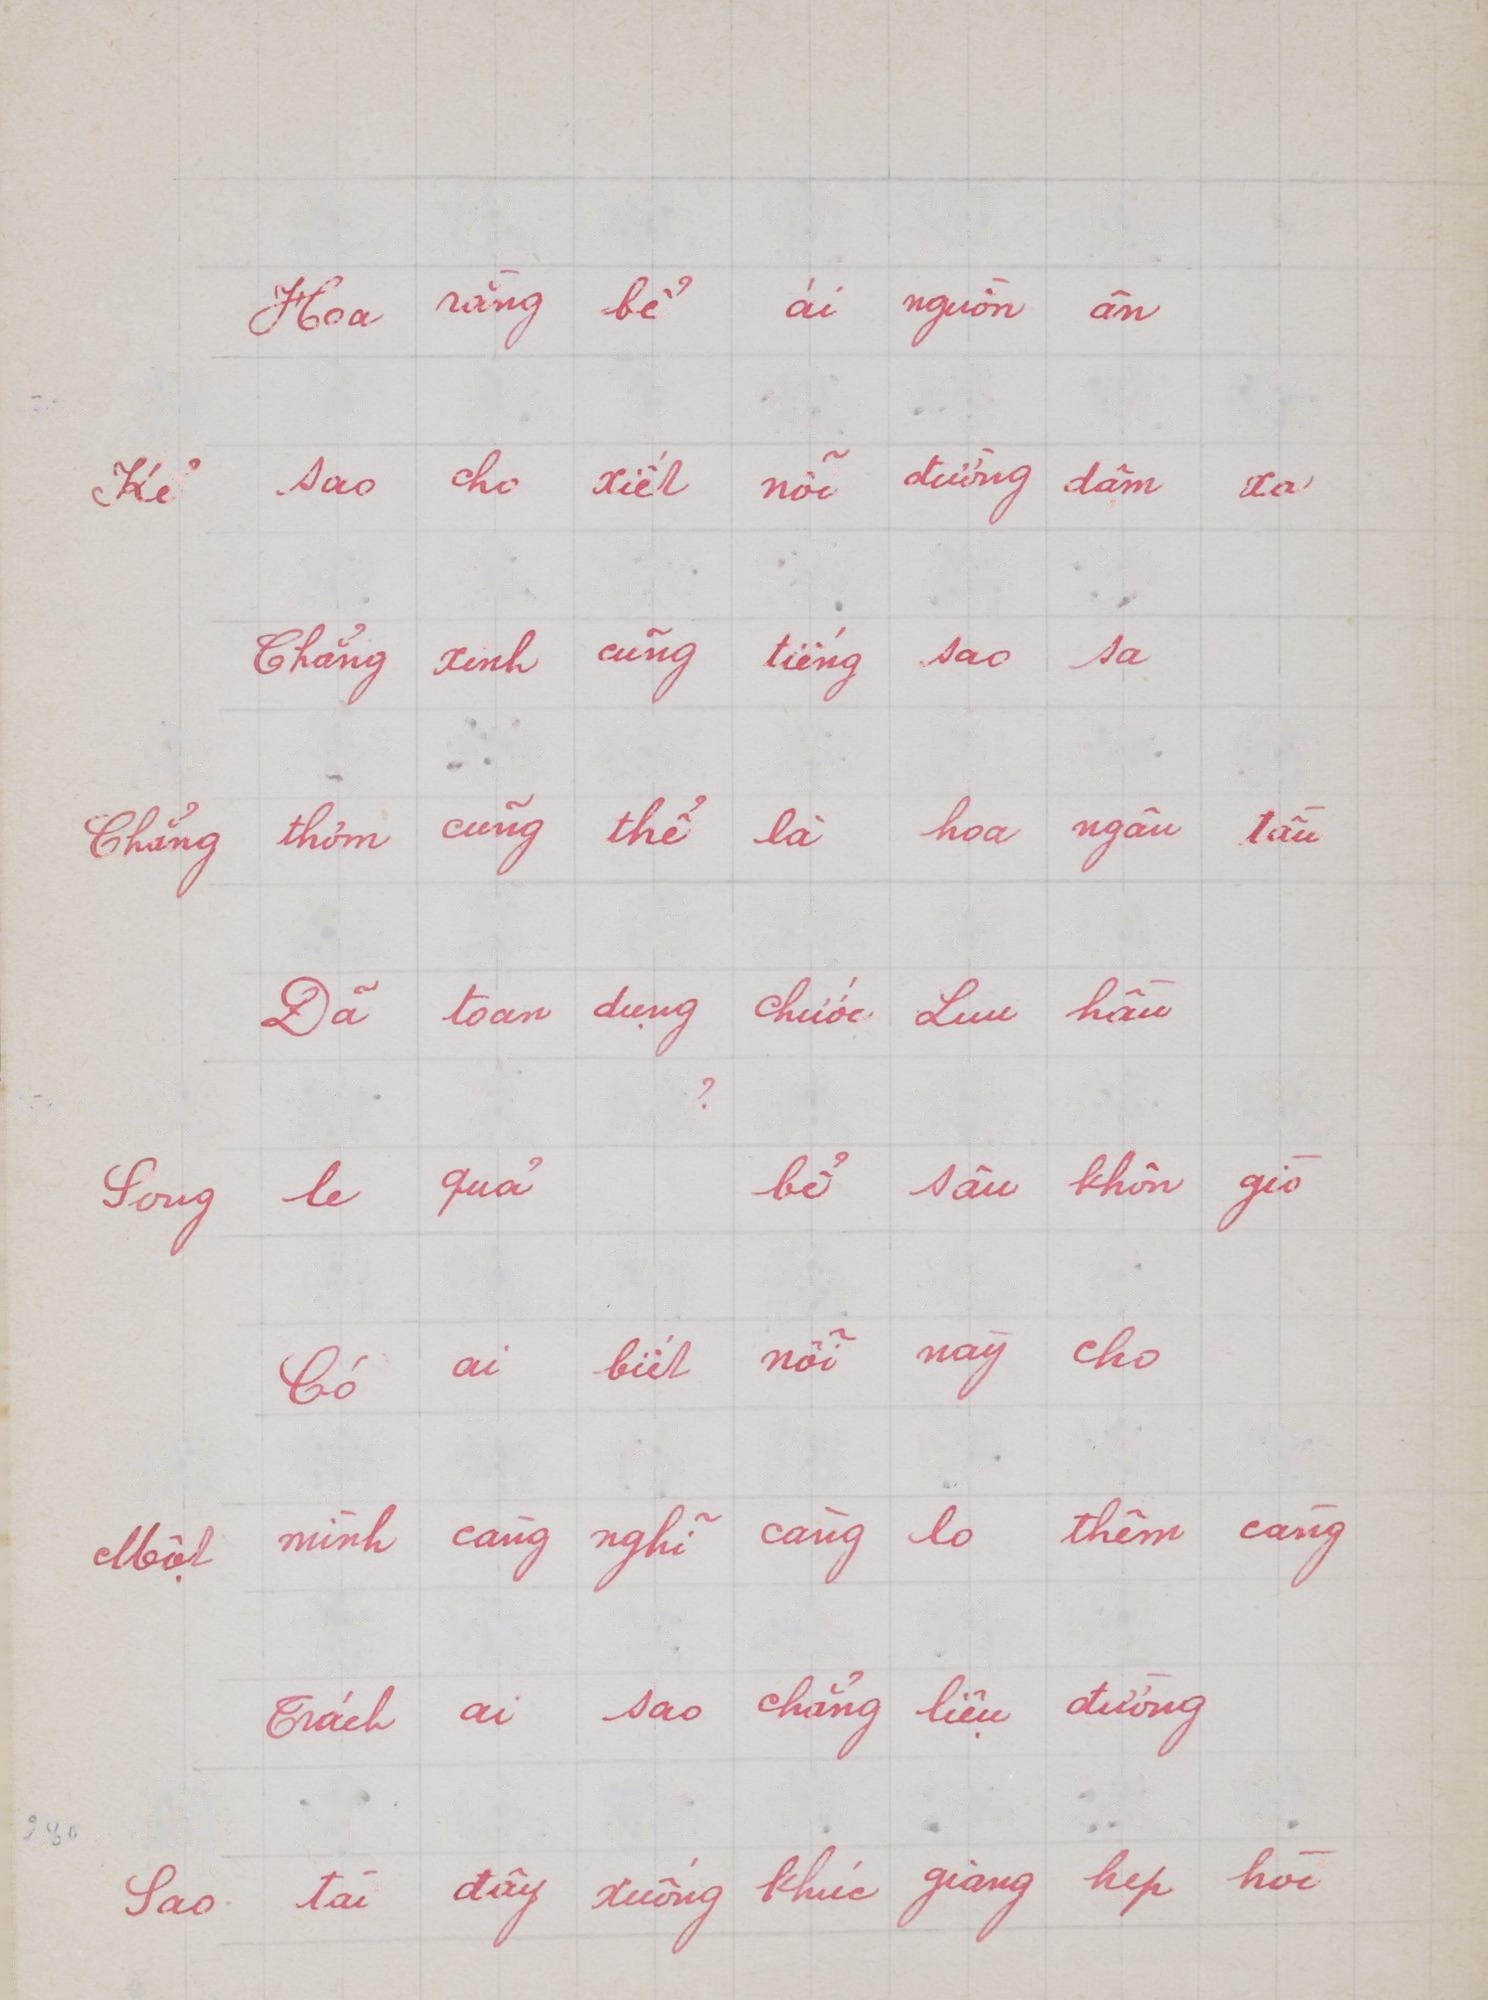 Hoa rằng bể ái nguồn ân
Kể sao cho xiết nỗi đường dăm xa
Chẳng xinh cũng tiếng sao sa
Chẳng thơm cũng thể là hoa ngâu tầu
Đã toan dụng chước Lưu hầu
?
Song le quả bể sâu khôn giò
Có ai biết nỗi này cho
Một mình càng nghĩ càng lo thêm càng
Trách ai sao chẳng liệu đường
Sao tài đây xuống khúc giang hẹp hòi